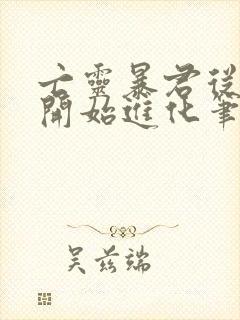 亡靈暴君從
開始進化筆
吴兹端